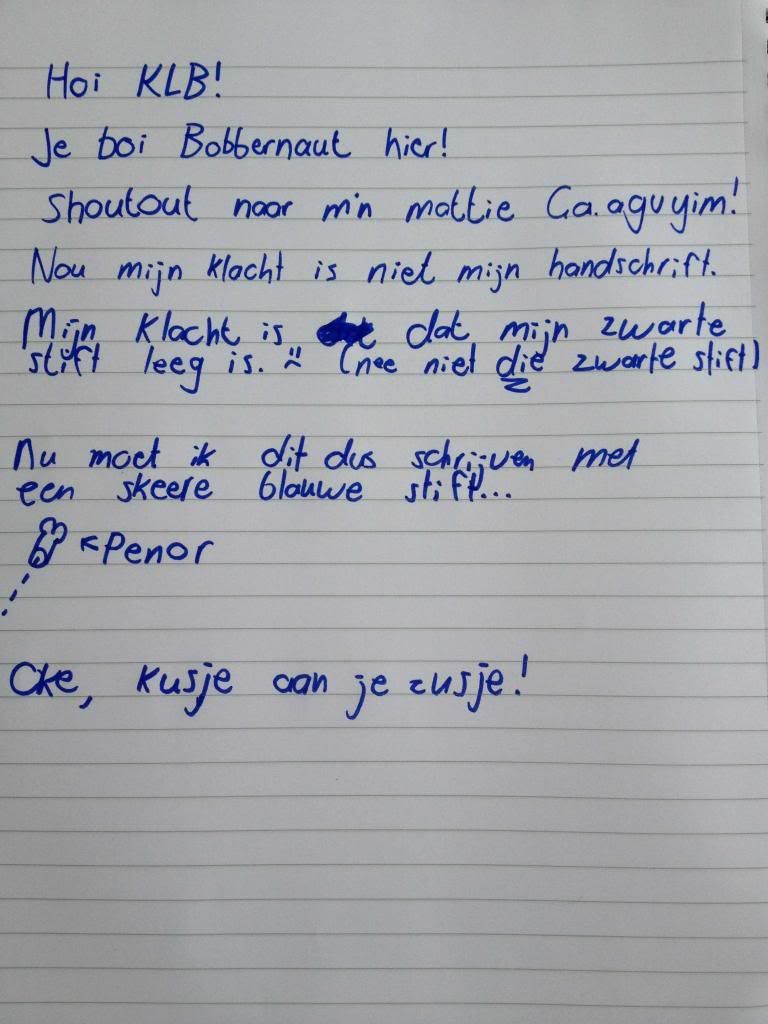 Hoi KLB!
Je boi Bobbernaut hier!
Shoutout naar m'n mattie Ga.aguyim!
Nou mijn klacht is niet mijn handschrift.
Mijn klacht is dat mijn zwarte
stift leeg is. :( (nee niet die zwarte stift)
Nu moet ik dit dus schrijven met
een skeere blauwe stift...
←Penor
Oke, kusje aan je zusje!